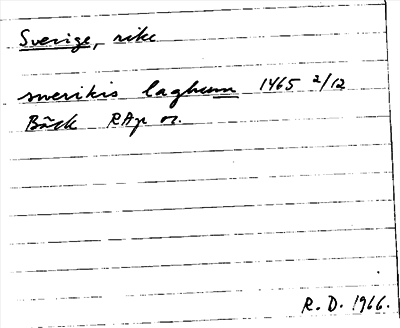 Sverige, rike
swerikis laghum 1465 2/12
Bäck RAp or.
R.D. 1966.